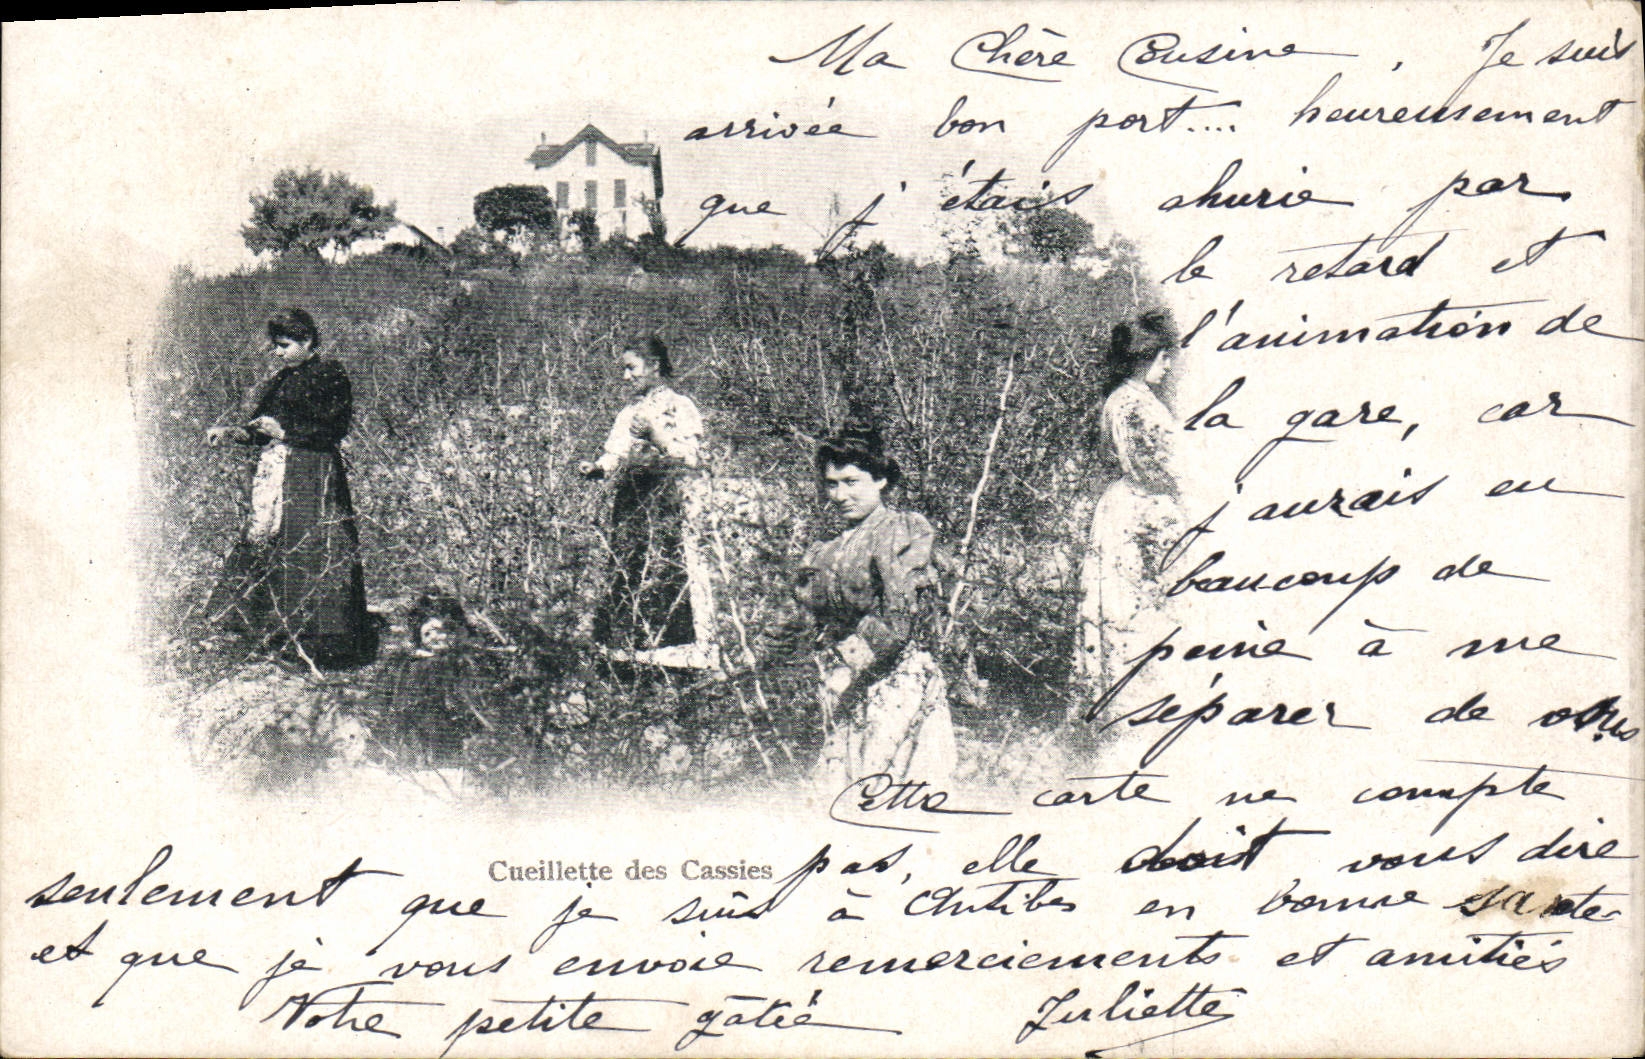 Ma Chère Cousine, Je suis
arrivée bon port.... heureusement
que j'étais ahurie par
le retard et
l'animation de
la gare, car
j'aurais eu
beaucoup de
peine à me
séparer de vous
Cette carte ne compte
pas, elle doit vous dire
Cueillette des Cassies
seulement que je suis à Antibes en bonne sante
et que je vous envoie remerciements et amitiés
Votre petite gâtée Juliette